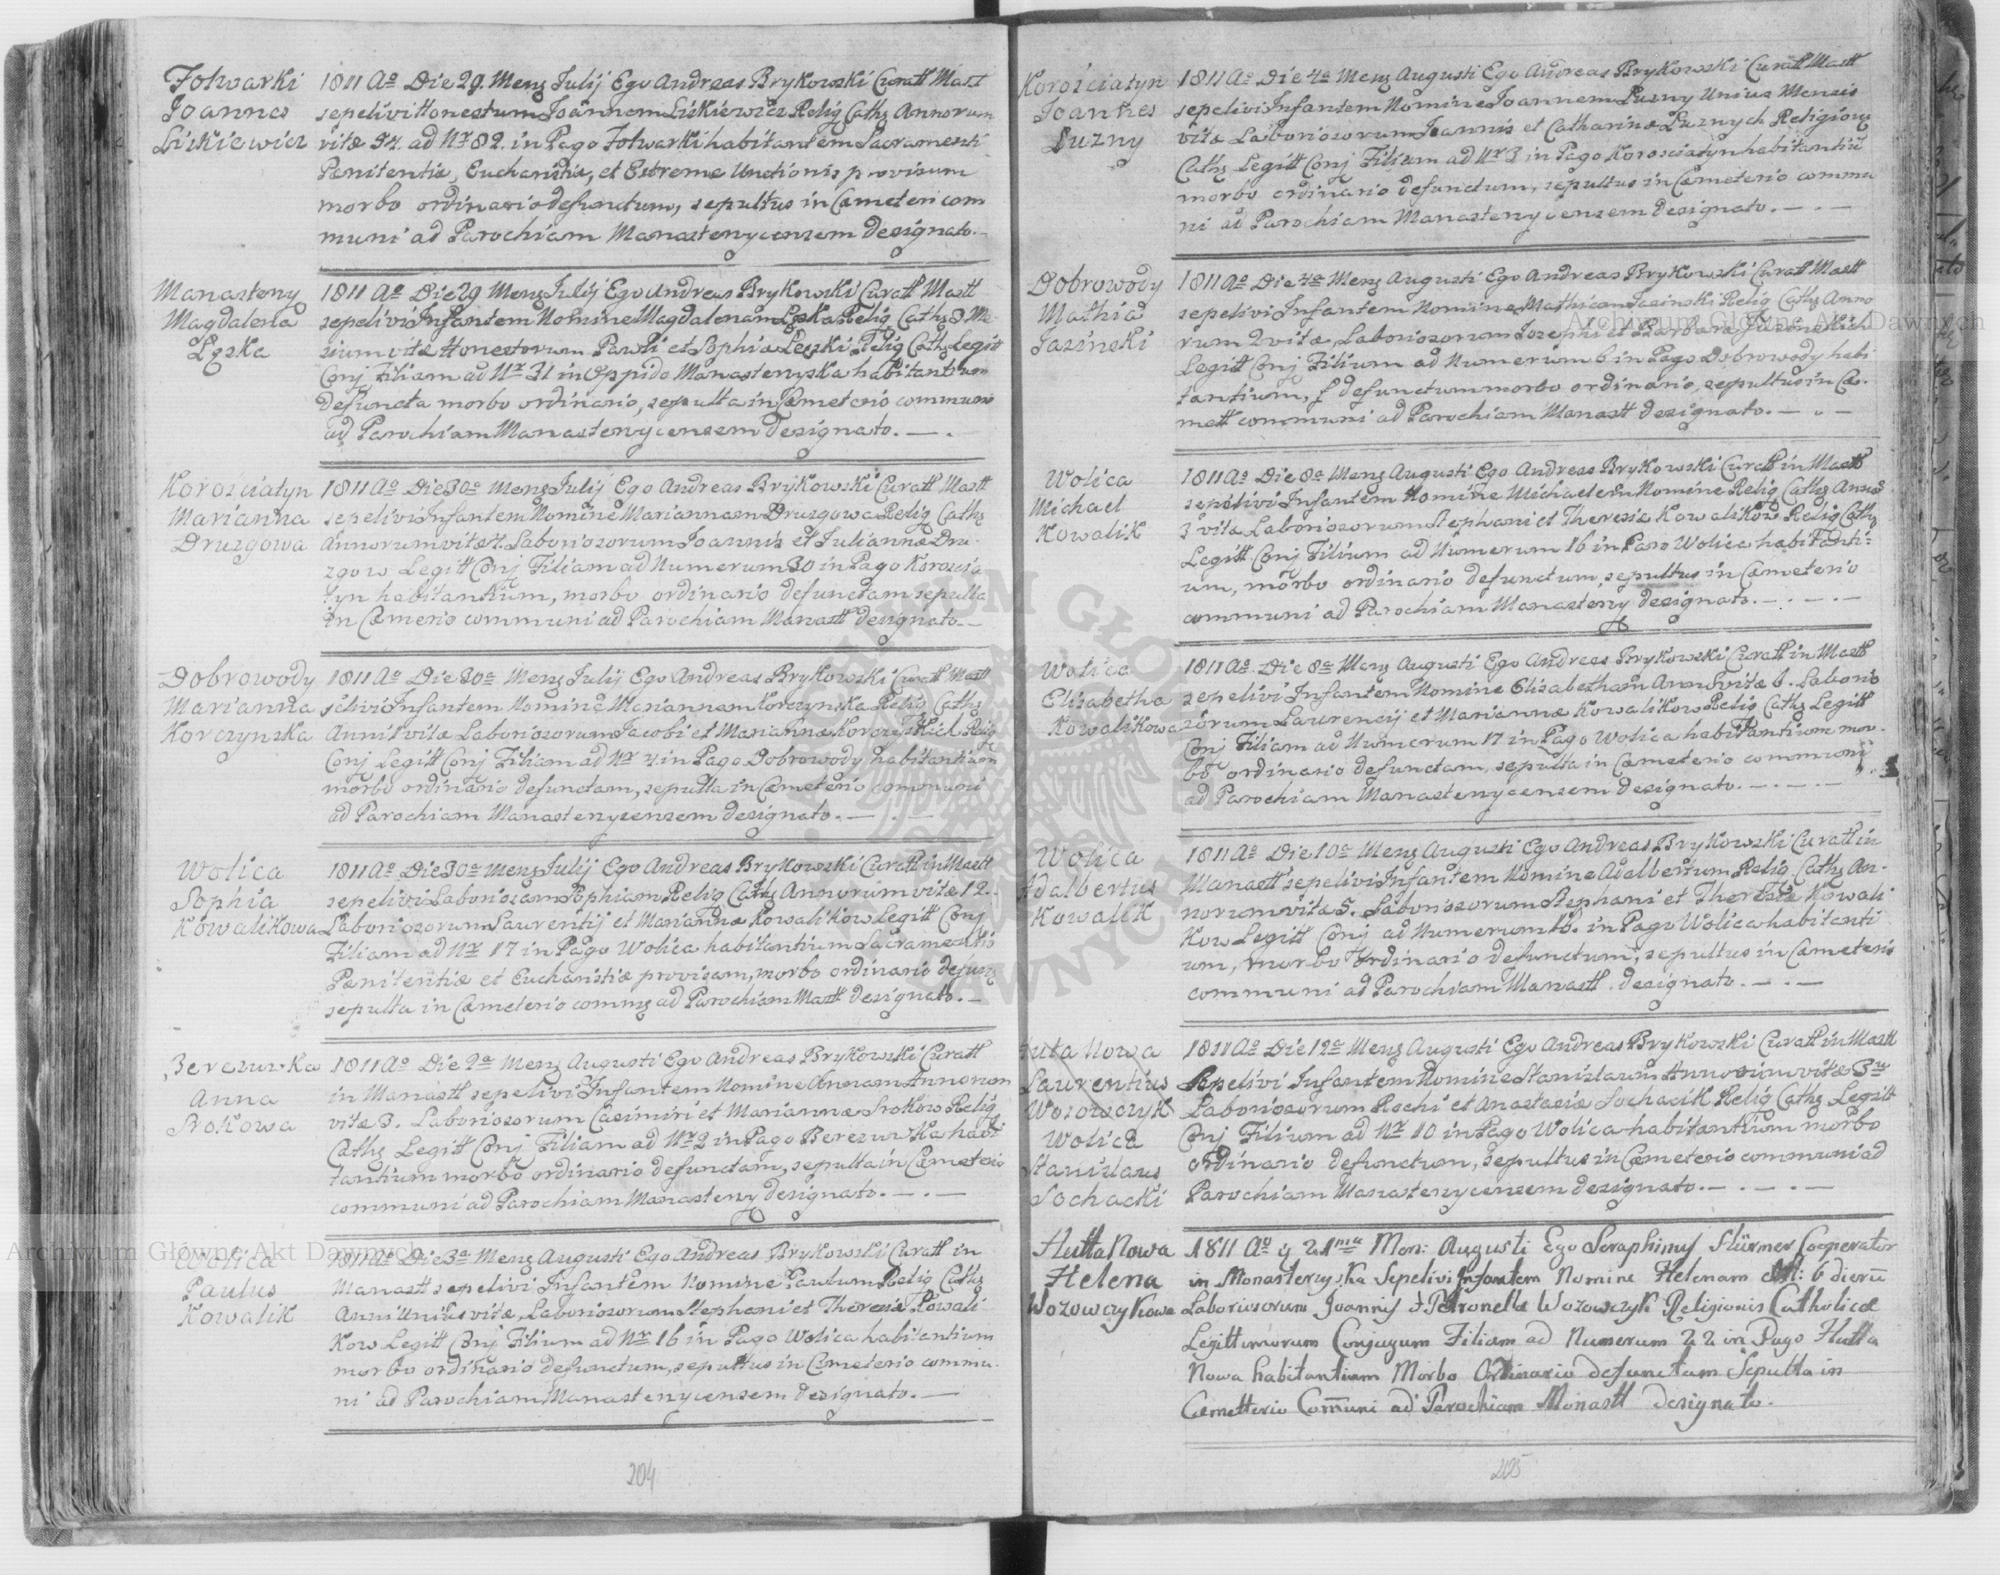 Folwarki
Joannes
Liskiewicz
1811 Aº Die 29. Mens Julij Ego Andreas Brykowski Curatt Mast
sepelivi Honestum Joannem Liskiewicz Relig Caths Annorum
vitæ 54. ad Nr 82. in Pago Folwarki habitantem Sacramenti
Pænitentiæ, Eucharistiæ, et Extreme Unctionis provisum
morbo ordinario defunctum, sepultus in Cæmeteri com
muni ad Parochiam Manasterzycensem designato.
Manasterzy
Magdalena
Lęzka
1811 Aº Die 29 Mens Julij Ego Andreas Brykowski Curatt Mastt
sepelivi Infantem Nomine Magdalenam Relig Caths 3. Me
sium vitæ Honestorum Pawli et Sophia Relig Caths Legitt
Conj Filiam ad Nr 31 in Oppido Manasterzyska habitantium
defuncta morbo ordinario, sepulta in Cæmeterio communi
ad Parochiam Manasterzycensem designato. —.
Korościatyn
Marianna
Druzgowa
1811 Aº Die 30a Mens Julij Ego Andreas Brykowski Curatt Mastt
sepelivi Infantem Nomine Mariannam Druzgowa Relig Caths
Annorum vitæ 7. Laboriosorum Joannis et Juliannæ Dru-
zgow Legitt Conj Filiam ad Numerum 30 in Pago Koroscia
tyn habitantium, morbo ordinario defunctam sepulta
in Cæmerio communi ad Parochiam Manastt designato. —
Dobrowody
Marianna
Korczynska
1811 Aº Die 30a Mens Julij Ego Andreas Brykowski Curatt Mastt
Infantem Nomine Mariannam Korczynska Relig Caths
Anni vitæ Laboriosorum Jacobi et Mariannæ Relig
Conj Legitt Conj Filiam ad Nr 4 in Pago Dobrowody habitantium
morbo ordinario defunctam, sepulta in Cæmeterio communi
ad Parochiam Manasterzycensem designato. — . —
Wolica
Sophia
Kowalikowa
1811 Aº Die 30a Mens Julij Ego Andreas Brykowski Curatt in Mastt
sepelivi Laboriosam Sophiam Relig Caths Annorum vitæ 12.
Laboriosorum Laurentij et Mariannæ Kowalikow Legitt Conj
Filiam ad Nr 17 in Pago Wolica habitantium Sacramentis
Pænitentiæ et Eucharistiæ provisam, morbo ordinario defuns
sepulta in Cæmeterio comms ad Parochiam Mastt designato. —
Berezuwka
Anna
Srokowa
1811 Aº Die 2a Mens Augusti Ego Andreas Brykowski Curatt
in Manastt sepelivi Infantem Nomine Annam Annorum
vitæ 3. Laboriosorum Casimiri et Mariannæ Srokow Relig
Caths Legitt Conj Filiam ad Nr 2 in Pago Berezuwka habi
tantium morbo ordinario defunctam, sepulta in Cæmeterio
communi ad Parochiam Manasterzy designato. — . —
Wolica
Paulus
Kowalik
1811 Aº Die 3a Mens Augusti Ego Andreas Brykowski Curatt in
Manastt sepelivi Infantem Nomine Paulum Relig Caths
Anni Unius vitæ, Laboriosorum Stephani et Theresiæ Kowali
kow Legitt Conj Filium ad Nr 16 in Pago Wolica habitantium
morbo ordinario defunctum, sepultus in Cæmeterio commu-
ni ad Parochiam Manasterzycensem designato. —
204
Korościatyn
Joannes
Luzny
1811 Aº Die 4a Mens Augusti Ego Andreas Brykowski Curatt Mastt
sepelivi Infantem Nomine Joannem Luzny Unius Mensis
vitæ Laboriosorum Joannis et Catharinæ Luznych Religionis
Caths Legitt Conj Filium ad Nr 3 in Pago Korosciatyn habitantiu
morbo ordinario defunctum, sepultus in Cæmeterio commu
ni ad Parochiam Manasterzycensem designato. — . —
Dobrowody
Mathia
Jasinski
1811 Aº Die 4a Mens Augusti Ego Andreas Brykowski Curatt Mastt
sepelivi Infantem Nomine Mathiam Jasinski Relig Caths Anno
rum 2 vitæ, Laboriosorum Josephi et Barbaræ
Legitt Conj Filium ad Numerium 6 in Pago Dobrowody habi
tantium, defunctum morbo ordinario, sepultus in Cæ-
mett communi ad Parochiam Manastt designato. — . —
Wolica
Michael
Kowalik
1811 Aº Die 8a Mens Augusti Ego Andreas Brykowski Curatt in Mastt
sepelivi Infantem Nomine Michaelem Nomine Relig Caths Anno
3 vitæ Laboriosorum Stephani et Theresiæ Kowalikow Relig Caths
Legitt Conj Filium ad Numerum 16 in Pago Wolica habitanti-
um, morbo ordinario defunctum, sepultus in Cæmeterio
communi ad Parochiam Manasterzy designato. — . — . —
Wolica
Elisabetha
Kowalikowa
1811 Aº. Die 8a Mens Augusti Ego Andreas Brykowski Curatt in Mastt
sepelivi Infantem Nomine Elisabetham Anni vitæ 6. Laborio
sorum Laurencij et Mariannæ Kowalikow Relig Caths Legitt
Conj Filiam ad Numerum 17 in Pago Wolica habitantium mor-
bo ordinario defunctam, sepulta in Cæmeterio communi
ad Parochiam Manasterzycensem designato. — . — . —
Wolica
Adalbertus
Kowalik
1811 Aº Die 10a Mens Augusti Ego Andreas Brykowski Curatt in
Manastt sepelivi Infantem Nomine Adalbertum Relig Caths An-
norum vitæ 5. Laboriosorum Stephani et Theresiæ Kowali
kow Legitt Conj ad Numerum 16. in Pago Wolica habitanti
um, morbo ordinario defunctum, sepultus in Cæmeterio
communi ad Parochiam Manastt. designato. — . —
Huta Nowa
Laurentius
Wozowczyk
Wolica
Stanislaus
Sochacki
1811 Aº Die 12a Mens Augusti Ego Andreas Brykowski Curatt in Mastt
Sepelivi Infantem Nomine Stanislaum Annorum vitæ 3
Laboriosorum Rochi et Anastasiæ Sochacik Relig Caths Legitt
Conj Filium ad Nr 10 in Pago Wolica habitantium morbo
ordinario defunctum, sepultus in Cæmeterio communi ad
Parochiam Manasterzycensem designato. — . — . —
Hutta Nowa
Helena
Wozowczykowa
1811 Aº 21ma Mon: Augusti Ego Seraphinus Stürmer Cooperator
in Monasterzyska Sepelivi Infantem Nomine Helenam 6 dierū
Laboriosorum Joannis Petronellæ Wozowczyk Religionis Catholicæ
Legittimorum Conjugum Filiam ad Numerum 22 in Pago Hutta
Nowa habitantium Morbo Ordinario defunctam Sepulta in
Cæmetterio Com̄uni ad Parochiam Monastt designato.
205
Archiwum Główne Akt Dawnych
Archiwum Główne Akt Dawnych